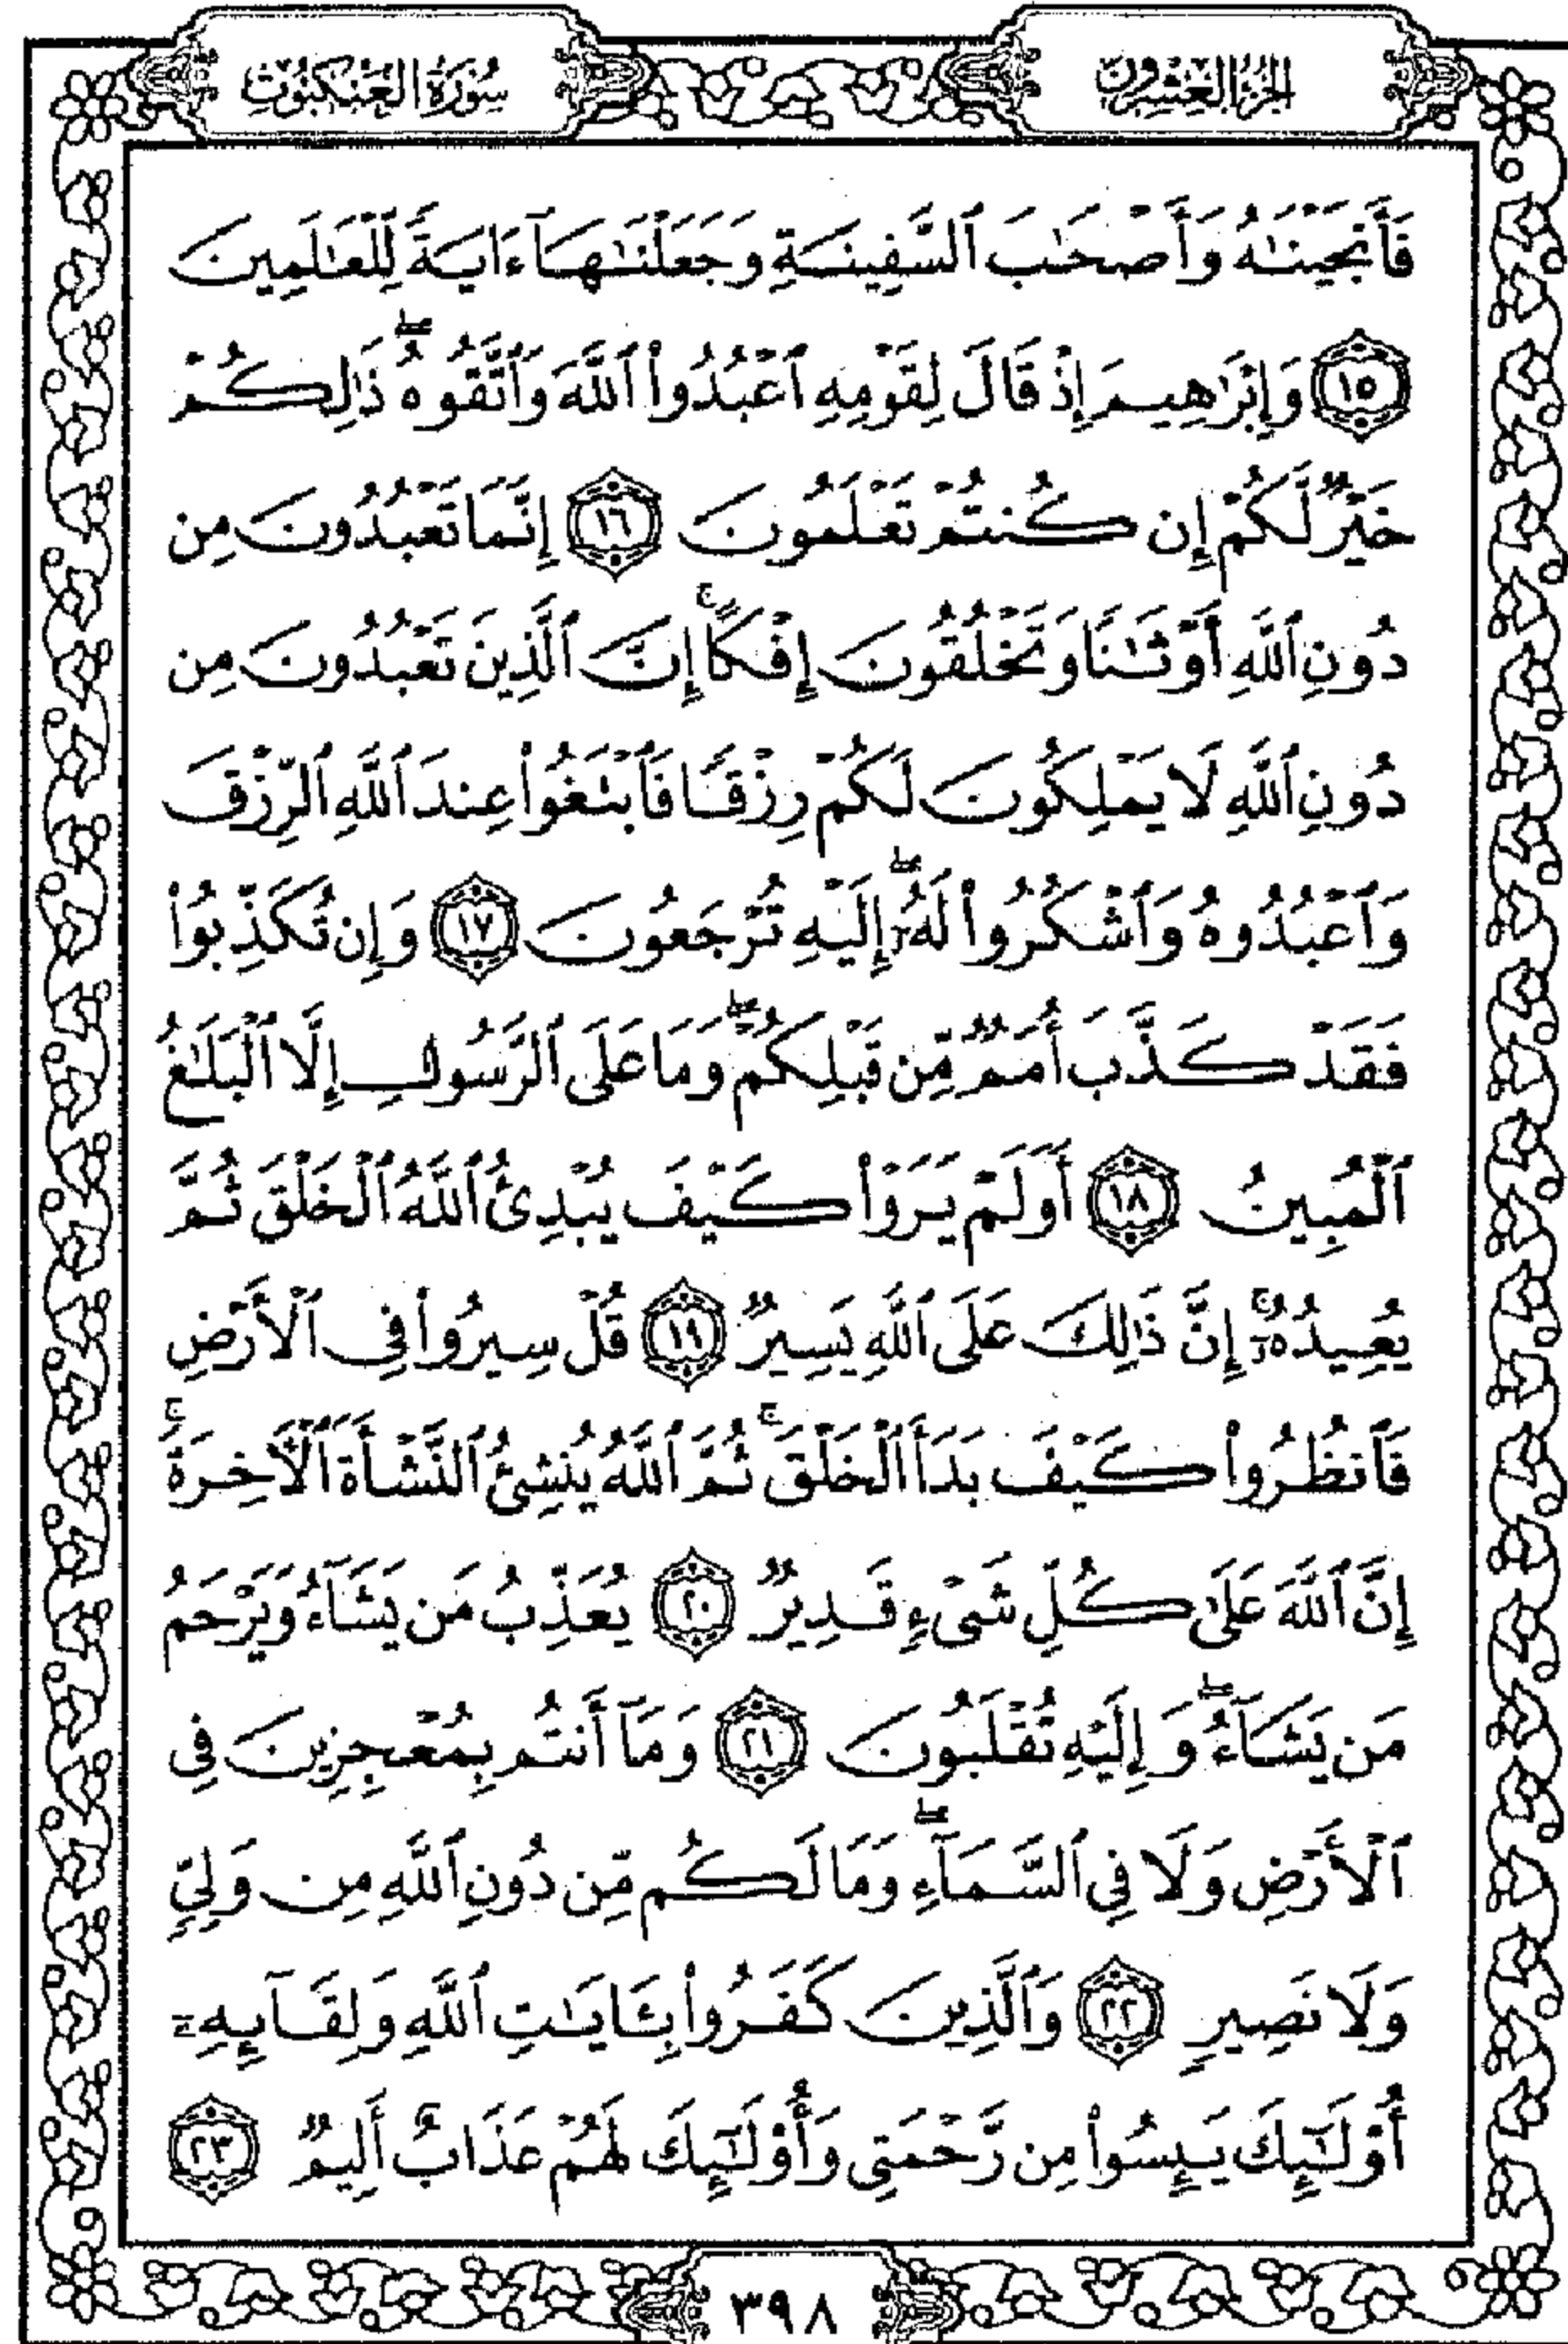 الجزء العشرون
سورة العنكبوت
فَأَنجَيْنَـٰهُ وَأَصْحَـٰبَ ٱلسَّفِينَةِ وَجَعَلْنَـٰهَآ ءَايَةً لِّلْعَـٰلَمِينَ
١٥ وَإِبْرَٰهِيمَ إِذْ قَالَ لِقَوْمِهِ ٱعْبُدُوا۟ ٱللَّهَ وَٱتَّقُوهُ ۖ ذَٰلِكُمْ
خَيْرٌ لَّكُمْ إِن كُنتُمْ تَعْلَمُونَ ١٦ إِنَّمَا تَعْبُدُونَ مِن
دُونِ ٱللَّهِ أَوْثَـٰنًا وَتَخْلُقُونَ إِفْكًا ۚ إِنَّ ٱلَّذِينَ تَعْبُدُونَ مِن
دُونِ ٱللَّهِ لَا يَمْلِكُونَ لَكُمْ رِزْقًا فَٱبْتَغُوا۟ عِندَ ٱللَّهِ ٱلرِّزْقَ
وَٱعْبُدُوهُ وَٱشْكُرُوا۟ لَهُۥٓ ۖ إِلَيْهِ تُرْجَعُونَ ١٧ وَإِن تُكَذِّبُوا۟
فَقَدْ كَذَّبَ أُمَمٌ مِّن قَبْلِكُمْ ۖ وَمَا عَلَى ٱلرَّسُولِ إِلَّا ٱلْبَلَـٰغُ
ٱلْمُبِينُ ١٨ أَوَلَمْ يَرَوْا۟ كَيْفَ يُبْدِئُ ٱللَّهُ ٱلْخَلْقَ ثُمَّ
يُعِيدُهُۥٓ ۚ إِنَّ ذَٰلِكَ عَلَى ٱللَّهِ يَسِيرٌ ١٩ قُلْ سِيرُوا۟ فِى ٱلْأَرْضِ
فَٱنظُرُوا۟ كَيْفَ بَدَأَ ٱلْخَلْقَ ۚ ثُمَّ ٱللَّهُ يُنشِئُ ٱلنَّشْأَةَ ٱلْـَٔاخِرَةَ ۚ
إِنَّ ٱللَّهَ عَلَىٰ كُلِّ شَىْءٍ قَدِيرٌ ٢٠ يُعَذِّبُ مَن يَشَآءُ وَيَرْحَمُ
مَن يَشَآءُ ۖ وَإِلَيْهِ تُقْلَبُونَ ٢١ وَمَآ أَنتُم بِمُعْجِزِينَ فِى
ٱلْأَرْضِ وَلَا فِى ٱلسَّمَآءِ ۖ وَمَا لَكُم مِّن دُونِ ٱللَّهِ مِن وَلِىٍّ
وَلَا نَصِيرٍ ٢٢ وَٱلَّذِينَ كَفَرُوا۟ بِـَٔايَـٰتِ ٱللَّهِ وَلِقَآئِهِۦٓ
أُو۟لَـٰٓئِكَ يَئِسُوا۟ مِن رَّحْمَتِى وَأُو۟لَـٰٓئِكَ لَهُمْ عَذَابٌ أَلِيمٌ ٢٣
٣٩٨